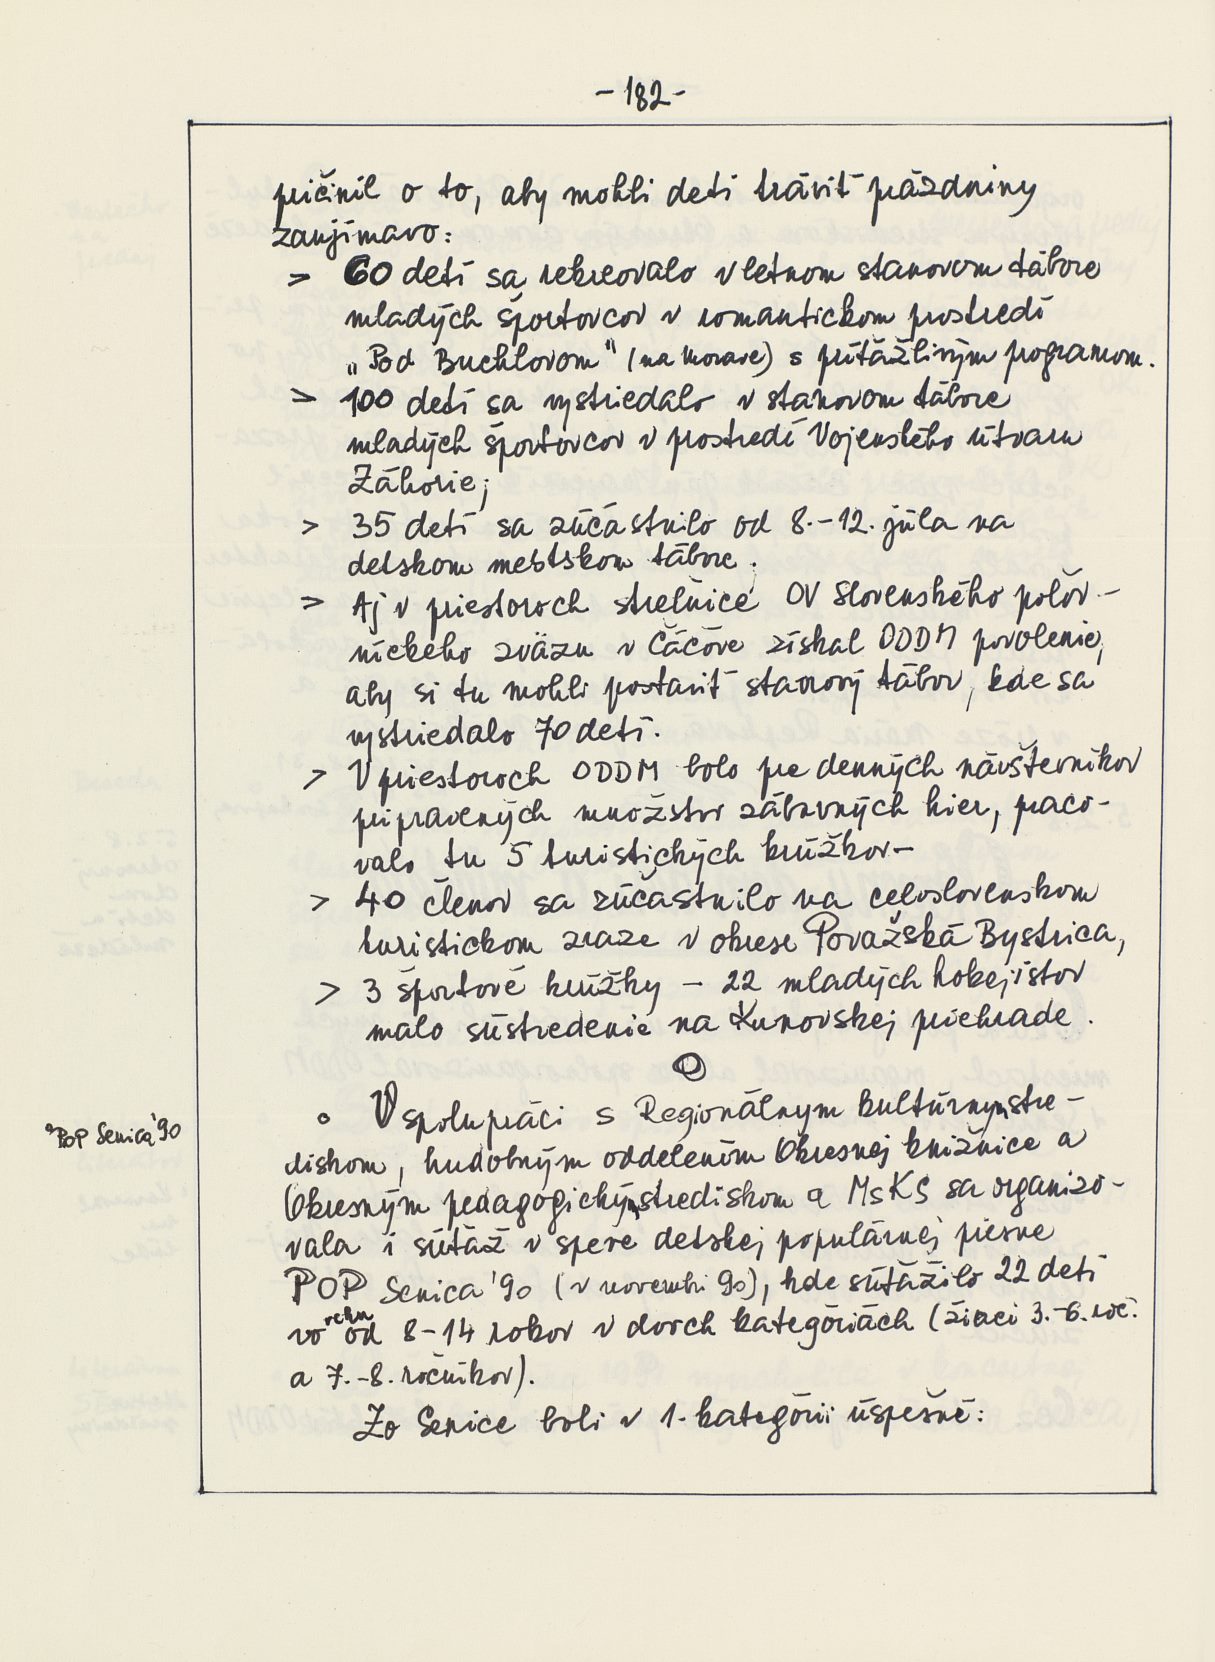 - 182 -
pričinil o to, aby mohli deti tráviť prázdniny
zaujímavo:
> 60 detí sa rekreovalo v letnom stanovom tábore
mladých športovcov v romantickom prostredí
„Pod Buchlovom" (na Morave) s príťažlivým programom.
> 100 detí sa vystriedalo v stanovom tábore
mladých športovcov v prostredí Vojenského útvaru
Záhorie;
> 35 detí sa zúčastnilo od 8.-12. júla na
detskom mestskom tábore.
> Aj v priestoroch strelnice OV Slovenského poľov-
níckeho zväzu v Čáčove získal ODDM povolenie,
aby si tu mohli postaviť stanový tábor, kde sa
vystriedalo 70 detí.
> V priestoroch ODDM bolo pre denných návštevníkov
pripravených množstvo zábavných hier, praco-
valo tu 5 turistických krúžkov-
> 40 členov sa zúčastnilo na celoslovenskom
turistickom zraze v okrese Považská Bystrica,
> 3 športové krúžky - 22 mladých hokejistov
malo sústredenie na Kunovskej priehrade.
• V spolupráci s Regionálnym kultúrnym stre-
diskom, hudobným oddelením Okresnej knižnice a
Okresným pedagogickým strediskom a MsKS sa organizo-
vala i súťaž v speve detskej populárnej piesne
POP Senica '90 (v novembri 90), kde súťažilo 22 detí
vo veku od 8-14 rokov v dvoch kategóriách (žiaci 3.-6. roč.
a 7.-8. ročníkov).
Zo Senice boli v 1. kategórii úspešné:
"POP Senica '90